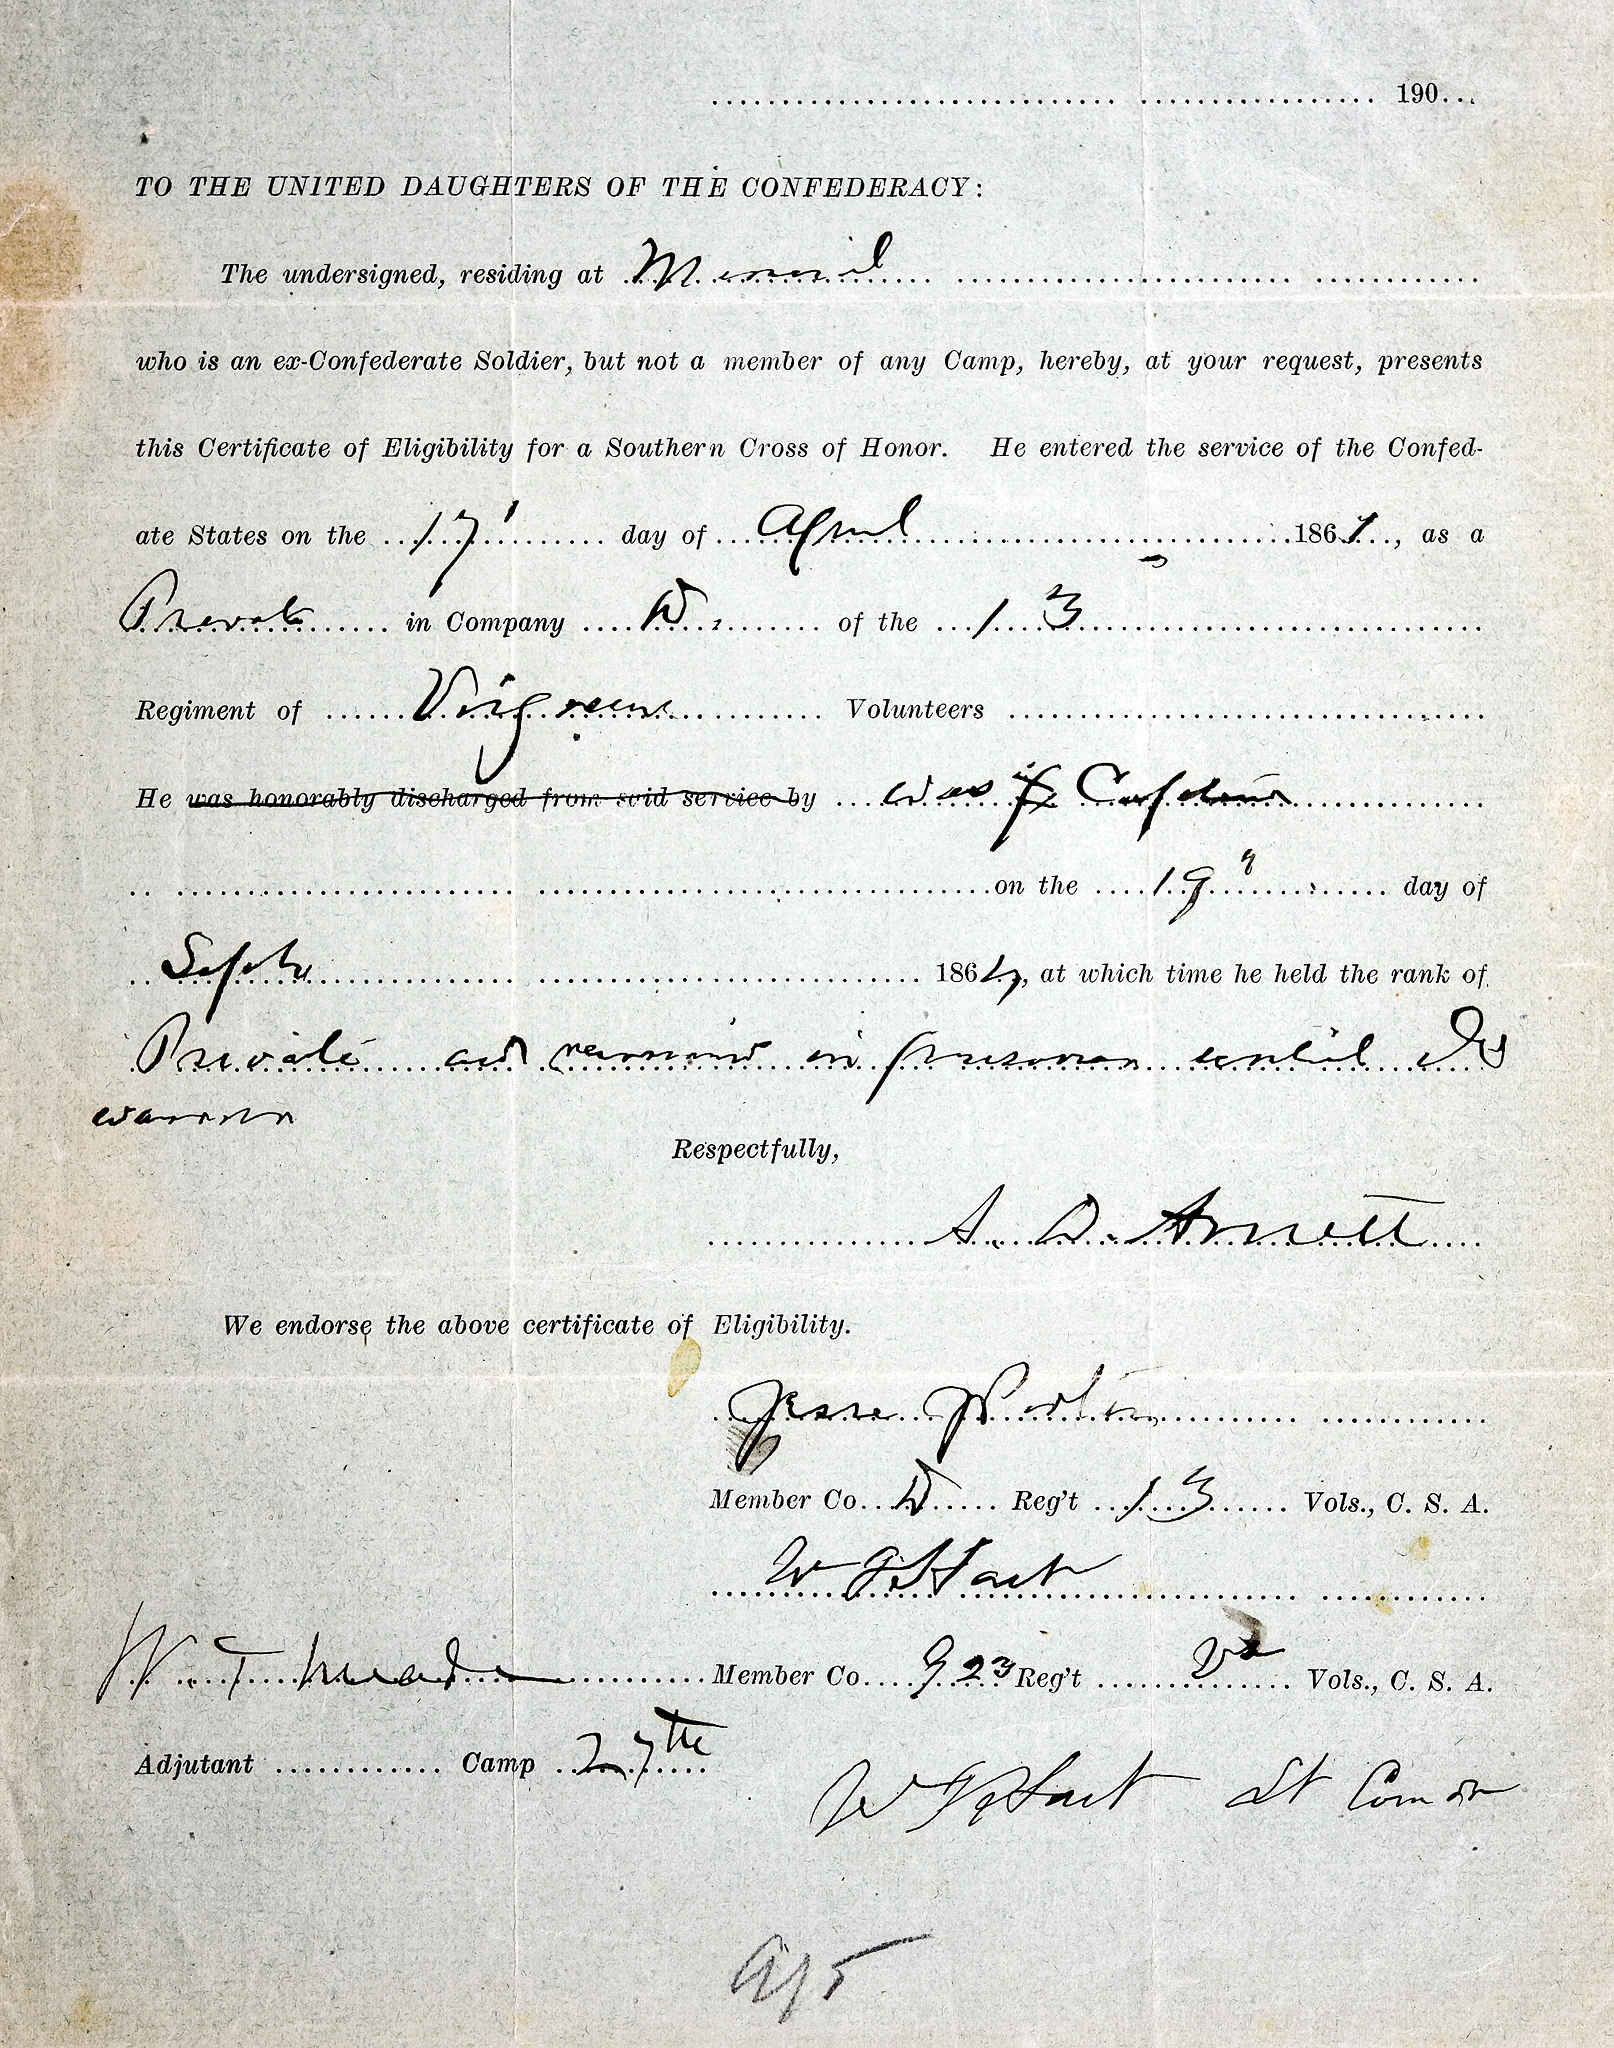 190...
TO THE UNITED DAUGHTERS OF THE CONFEDERACY:
The undersigned, residing at
who is an ex-Confederate Soldier, but not a member of any Camp, hereby, at your request, presents
this Certificate of Eligibility for a Southern Cross of Honor. He entered the service of the Confed-
ate States on the 17' day of April 1861, as a
Private in Company D. of the 13
Regiment of Virginia Volunteers
He was honorably discharged from said service by was Captured
on the 19" day of
Septr 1864, at which time he held the rank of
Private and remained in prison until
Respectfully,
A. D. Arnett
We endorse the above certificate of Eligibility.
Jesse Porter
Member Co. D Reg't 13 Vols., C. S. A.
W F Hart
W. T. Meade Member Co. 9 23 Reg't Va Vols., C. S. A.
Adjutant Camp 27th
W F Hart Lt Comdr